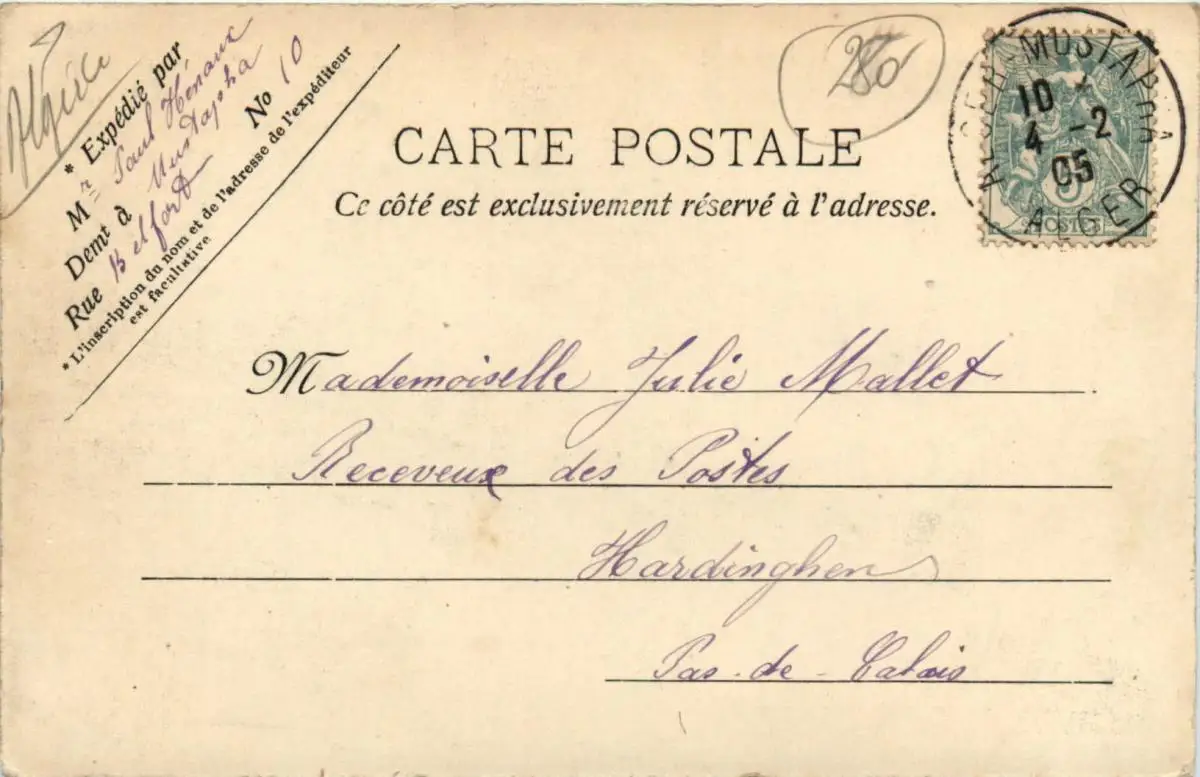 Algérie
* Expédié par
Mr Paul Hénaux
Demt à Mustapha
Rue Belfort No 10
* L'inscription du nom et de l'adresse de l'expéditeur
est facultative
280
CARTE POSTALE
Ce côté est exclusivement réservé à l'adresse.
ALGER-MUSTAPHA
10 *
4 -2
05
ALGER
5
POSTES
Mademoiselle Julie Mallet
Receveux des Postes
Hardinghen
Pas-de-Calais